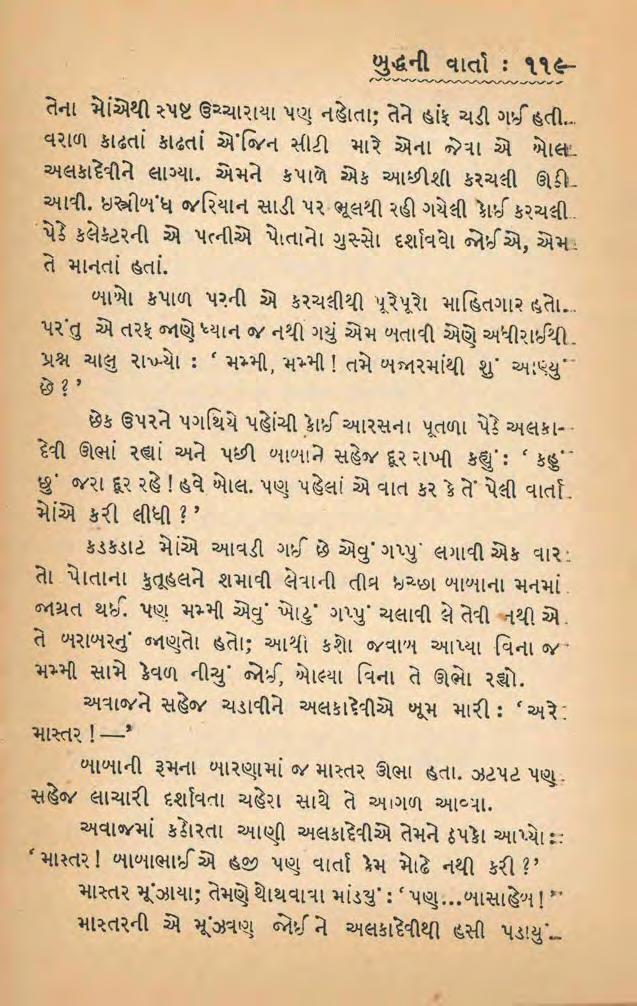 બુદ્ધની વાર્તા : ૧૧૯
તેના મોંએથી સ્પષ્ટ ઉચ્ચારાયા પણ નહોતા; તેને હાંફ ચડી ગઈ હતી.
વરાળ કાઢતાં કાઢતાં એંજિન સીટી મારે એના જેવા એ બોલ
અલકાદેવીને લાગ્યા. એમને કપાળે એક આછીશી કરચલી ઊડી
આવી. ઇસ્ત્રીબંધ જરિયાન સાડી પર ભૂલથી રહી ગયેલી કોઈ કરચલી
પેઠે કલેક્ટરની એ પત્નીએ પોતાનો ગુસ્સો દર્શાવવો જોઈએ, એમ
તે માનતાં હતાં.
બાબો કપાળ પરની એ કરચલીથી પૂરેપૂરો માહિતગાર હતો.
પરંતુ એ તરફ જાણે ધ્યાન જ નથી ગયું એમ બતાવી એણે અધીરાઈથી
પ્રશ્ન ચાલુ રાખ્યો : ‘ મમ્મી, મમ્મી ! તમે બજારમાંથી શું આણ્યું
છે ? ’
છેક ઉપરને પગથિયે પહોંચી કોઈ આરસના પૂતળા પેઠે અલકા-
દેવી ઊભાં રહ્યાં અને પછી બાબાને સહેજ દૂર રાખી કહ્યું : ‘ કહું
છું જરા દૂર રહે ! હવે બોલ. પણ પહેલાં એ વાત કર કે તેં પેલી વાર્તા
મોંએ કરી લીધી ? ’
કડકડાટ મોંએ આવડી ગઈ છે એવું ગપ્પું લગાવી એક વાર
તો પોતાના કુતૂહલને શમાવી લેવાની તીવ્ર ઇચ્છા બાબાના મનમાં
જાગ્રત થઈ. પણ મમ્મી એવું ખોટું ગપ્પું ચલાવી લે તેવી નથી એ
તે બરાબરનું જાણતો હતો; આથી કશો જવાબ આપ્યા વિના જ
મમ્મી સામે કેવળ નીચું જોઈ, બોલ્યા વિના તે ઊભો રહ્યો.
અવાજને સહેજ ચડાવીને અલકાદેવીએ બૂમ મારી : ‘ અરે
માસ્તર ! —’
બાબાની રૂમના બારણામાં જ માસ્તર ઊભા હતા. ઝટપટ પણ
સહેજ લાચારી દર્શાવતા ચહેરા સાથે તે આગળ આવ્યા.
અવાજમાં કઠોરતા આણી અલકાદેવીએ તેમને ઠપકો આપ્યો :
‘ માસ્તર ! બાબાભાઈએ હજી પણ વાર્તા કેમ મોઢે નથી કરી ?’
માસ્તર મૂંઝાયા; તેમણે થોથવાવા માંડ્યું : ‘ પણ...બાસાહેબ ! ’
માસ્તરની એ મૂંઝવણ જોઈને અલકાદેવીથી હસી પડાયું